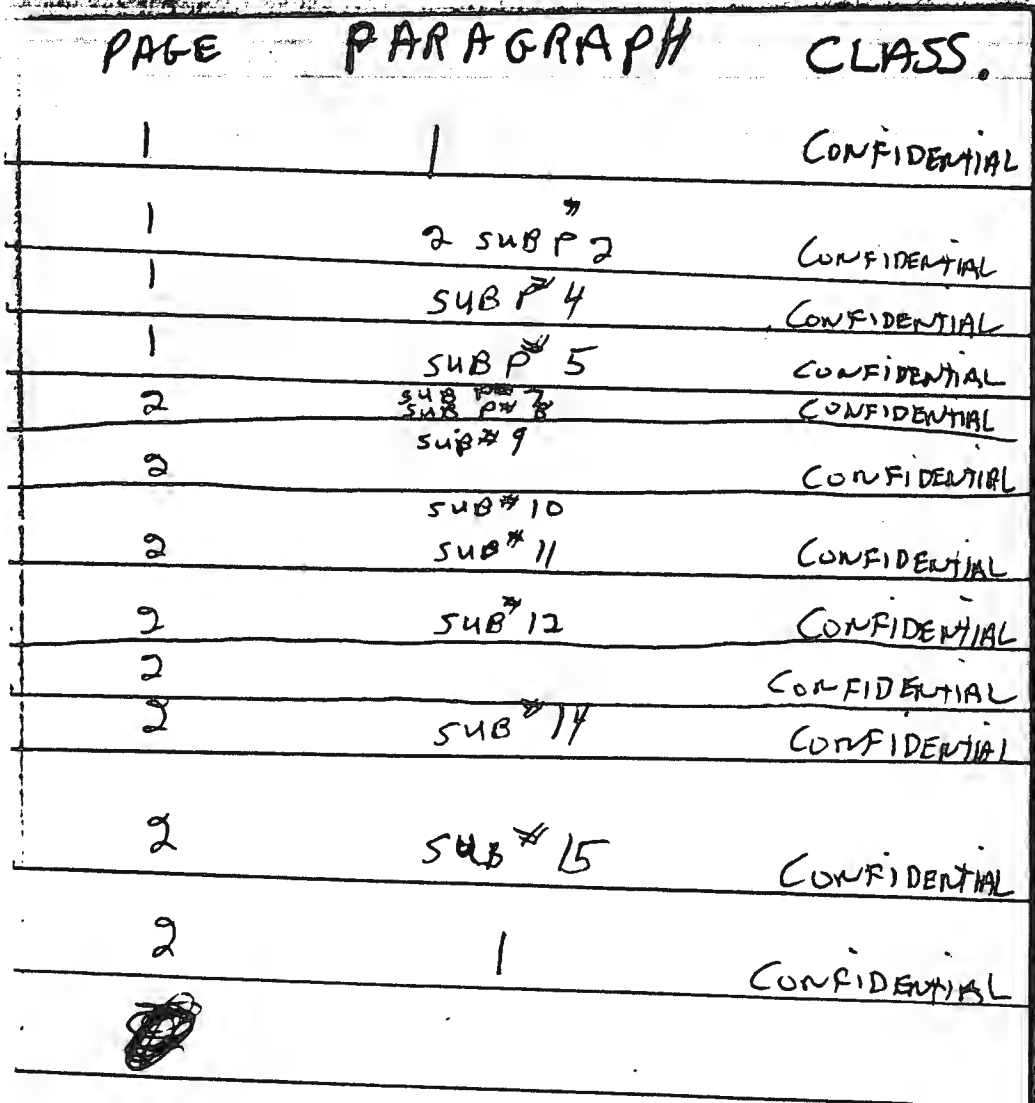 PAGE PARAGRAPH CLASS.
1 1 CONFIDENTIAL
1 2 SUB P# 2 CONFIDENTIAL
1 SUB P# 4 CONFIDENTIAL
1 SUB P# 5 CONFIDENTIAL
SUB P# 7
2 SUB P# 8 CONFIDENTIAL
SUB # 9
2 CONFIDENTIAL
SUB # 10
2 SUB # 11 CONFIDENTIAL
2 SUB # 12 CONFIDENTIAL
2 CONFIDENTIAL
2 SUB # 14 CONFIDENTIAL
2 SUB # 15 CONFIDENTIAL
2 1 CONFIDENTIAL